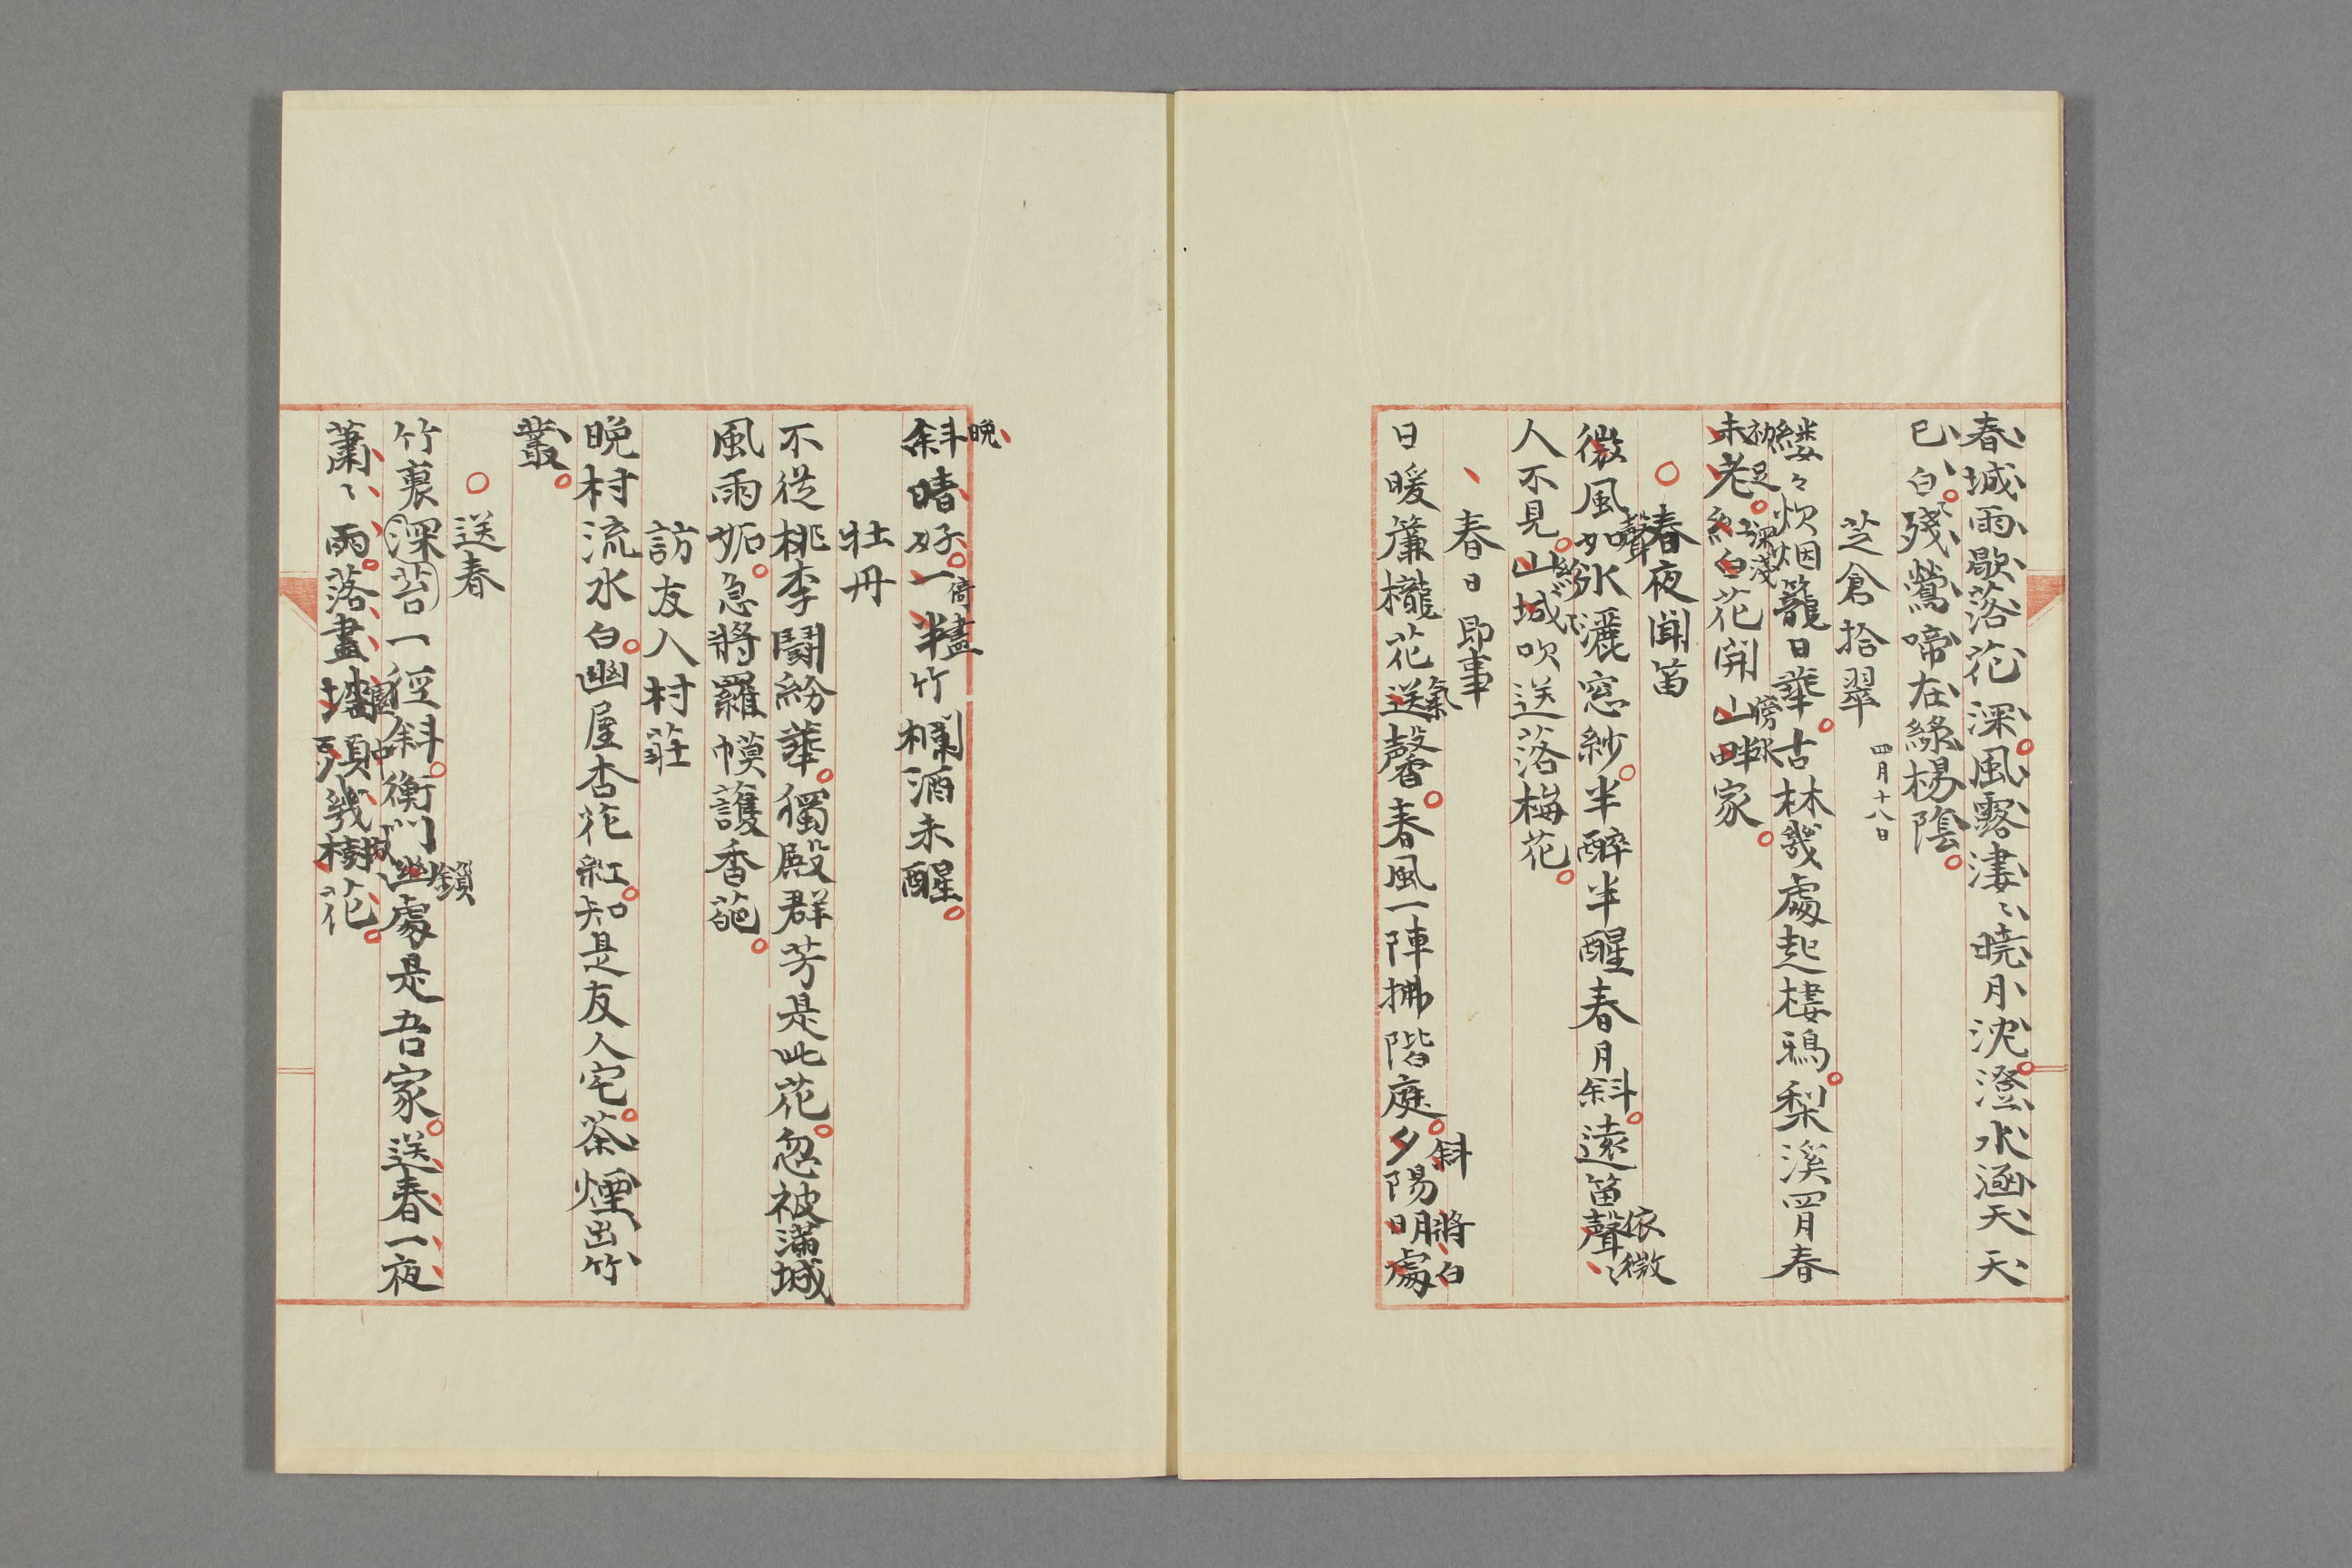 春城雨歇落花深風露凄〻暁月沈澄水涵天天
已白殘鶯啼在綠楊陰
芝倉拾翠
四月十八日
縷々炊烟籠日華古林幾處起棲鴉梨溪四月春
未老紅白花開山畔家
初足
深淺
傍
春夜聞笛
微風如水灑窓紗半醉半醒春月斜遠笛聲〻
人不見山城吹送落梅花
聲
紛
依微
春日即事
日暖簾櫳花送馨春風一陣拂階庭夕陽明處
氣
斜
將
白
斜晴好一半竹欄酒未醒
晩
倚
牡丹
不從桃李鬪紛華獨殿群芳是此花忽被滿城
風雨妬急將羅幙護香葩
訪友人村莊
晩村流水白幽屋杏花紅知是友人宅茶煙出竹
叢
送春
竹裏深苔一徑斜衡門幽處是吾家送春一夜
鎖
蕭〻雨落盡墻頭幾樹花